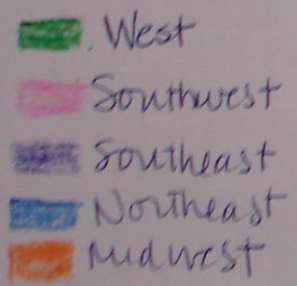 West
Southwest
Southeast
Northeast
Midwest